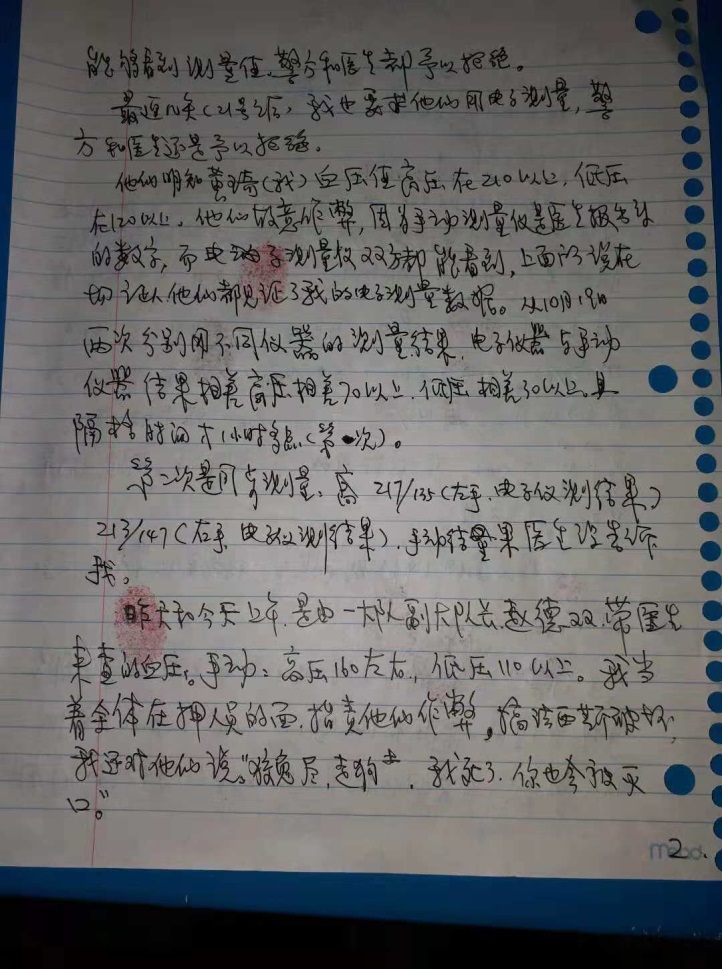 能够看到测量值，警方和医生都予以拒绝。
最近几天(21号之后)，我也要求他们用电子测量，警
方和医生还是予以拒绝。
他们明知黄琦(我)血压值高压在210以上，低压
在120以上，他们故意作弊，因为手动测量仪是医生报告
的数字，而电子测量仪双方都能看到，上面所说在
切证人他们都见证了我的电子测量数据。从10月19日
两次分别用不同仪器的测量结果，电子仪器与手动
仪器结果相差高压相差70以上，低压相差30以上。且
隔 时间才1小时多点(第一次)。
第二次是同步测量，高217/135(左手，电子仪测结果)
213/147(右手，电子仪测结果)，手动结果医生没告诉
我。
昨天和今天上午，是由一大队副大队长赵德双，带医生
来查的血压。手动：高压160左右，低压110以上。我当
着全体在押人员的面，指责他们作弊，搞
我还对他们说"狡兔尽，走狗烹，我死了，你也会被灭
口。"
2.